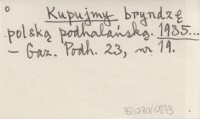 Kupujmy bryndzę
polską podhalańską. 1935...
– Gaz. Podh. 23, nr 19.